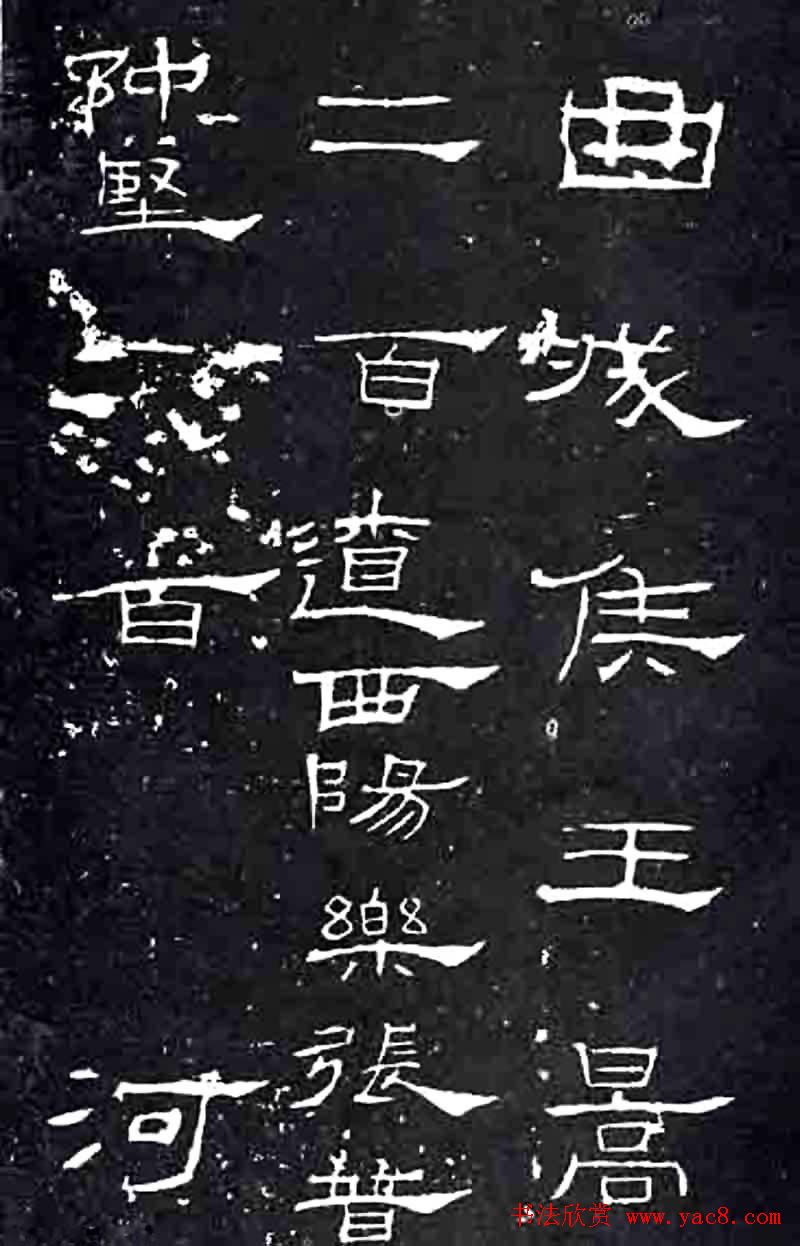 曲城侯王暠
二百遼西陽樂張普
仲堅二百 河
书法欣赏 www.yac8.com